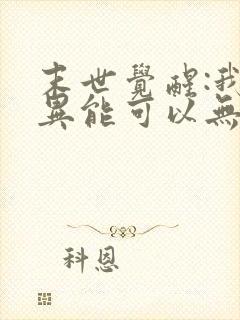 末世覺醒:我
異能可以無
科恩